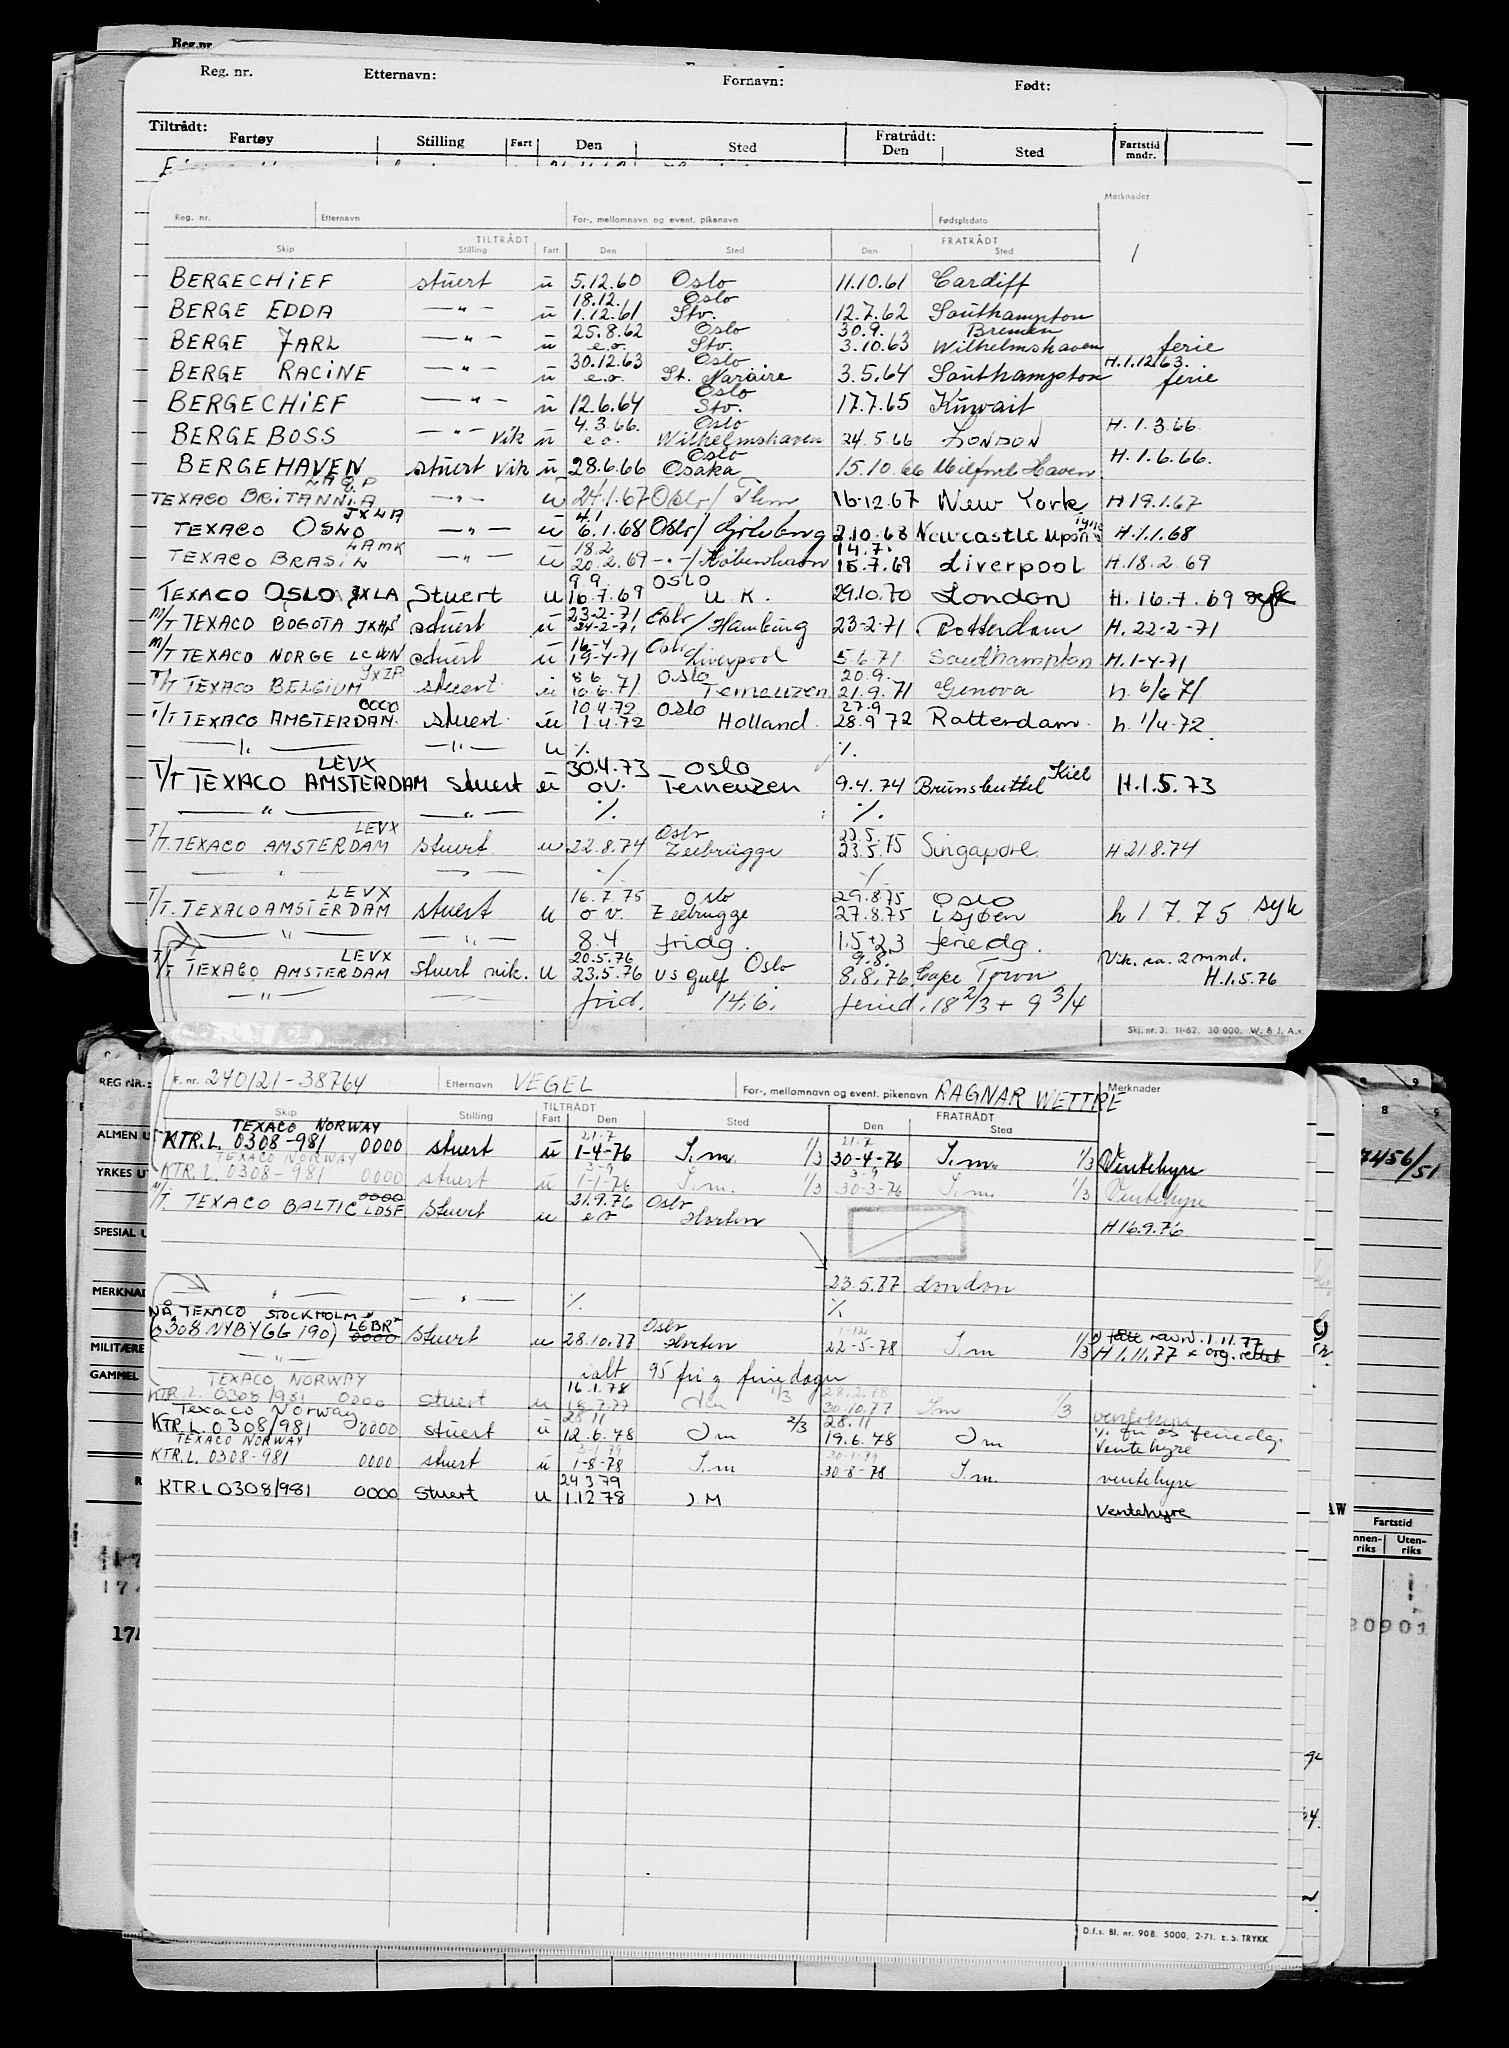 Reg.nr.
Reg. nr. Etternavn: Fornavn: Født:
Tiltrådt: Fratrådt:
Fartøy Stilling Fart Den Sted Den Sted Fartstid mndr.
Merknader
Reg. nr. Etternavn For-, mellomnavn og event. pikenavn Fødselsdato
TILTRÅDT FRATRÅDT
Skip Stilling Fart Den Sted Den Sted
1
BERGECHIEF stuert u 5.12.60 Oslo 11.10.61 Cardiff
18.12. Oslo
BERGE EDDA —"— u 1.12.61 Stv. 12.7.62 Southampton
25.8.62 Oslo 30.9. Bremen
BERGE JARL —"— u e.o. Stv. 3.10.63 Wilhelmshaven ferie
30.12.63 Oslo H.1.12.63.
BERGE RACINE —"— u e.o. St. Nazaire 3.5.64 Southampton ferie
Oslo
BERGECHIEF —"— u 12.6.64 Stv. 17.7.65 Kuwait
4.3.66. Oslo H.1.3.66.
BERGEBOSS —"— vik u e.o. Wilhelmshaven 24.5.66 LONDON
Oslo H.1.6.66.
BERGEHAVEN stuert vik u 28.6.66 Osaka 15.10.66 Milford Haven
LAQP
TEXACO BRITANNIA —"— u 24.1.67 Oslo/ 16.12.67 New York H 19.1.67
JXLA 4/1
TEXACO OSLO —"— u 6.1.68 Oslo/ Göteborg 2.10.68 Newcastle upon Tyne H.1.1.68
LAMK 18.2 14.7.
TEXACO BRASIL —"— u 20.2.69 —"—/København 15.7.69 Liverpool H.18.2.69
9.9. OSLO
TEXACO OSLO JXLA Stuert u 16.7.69 U.K. 29.10.70 London H.16.7.69
23-2-71
M/T TEXACO BOGOTA stuert u 24-2-71 Oslo/Hamburg 23-2-71 Rotterdam H.22-2-71
16-4 Oslo
M/T TEXACO NORGE LCWN stuert u 19-4-71 Liverpool 5.6.71 Southampton H.1-4-71
JXIP 8.6 Oslo 20.9.
T/T TEXACO BELGIUM stuert u 10.6.71 Terneuzen 21.9.71 Genova h. 6/6 71
0000 10.4.72 Oslo 27.9
T/T TEXACO AMSTERDAM. stuert. u 1.4.72 Holland. 28.9 72 Rotterdam. h. 1/4-72
—"— —"— u % %
LEVX 30.4.73 Oslo Kiel
T/T TEXACO AMSTERDAM stuert u ov. Terneuzen 9.4.74 Brunsbuttel H.1.5.73
—"— —"— % %
LEVX Oslo 22.5.
T/T. TEXACO AMSTERDAM stuert. u 22.8.74 Zeebrügge 23.5.75 Singapore. H 21.8.74
" —"— % %
LEVX 16.7.75 Oslo 29.8.75 OSLO
T/T. TEXACO AMSTERDAM stuert u o.v. Zeebrugge 27.8.75 i sjøen h 1 7.75. syk
—"— —"— 8.4 fridg. 1.5+2.3 feriedg.
LEVX 20.5.76 Oslo 9.8. Vik. ca. 2 mnd.
T/T TEXACO AMSTERDAM stuert vik. u 23.5.76 US Gulf 8.8.76 Cape Town H.1.5.76
—"— —"— frid. 14.6. feried. 18 2/3 + 9 3/4
Skj. nr. 3. 11-62. 30 000. W. & J. A.s.
F. nr. 240121-38764 Etternavn VEGEL For-, mellomnavn og event. pikenavn RAGNAR WETTRE Merknader
TILTRÅDT FRATRÅDT
Skip Stilling Fart Den Sted Den Sted
TEXACO NORWAY 21.7 21.7
KTR.L. 0308-981 0000 stuert u 1-4-76 I.m. 1/3 30-4-76 I.m. 1/3 Ventehyre
TEXACO NORWAY 3-9 3-9
KTR.L. 0308-981 0000 stuert u 1-1-76 I.m. 1/3 30-3-76 I.m. 1/3 Ventehyre
0000 21.9.76 Oslo
M/T. TEXACO BALTIC LDSF Stuert u e.o Horten H 16.9.76
23.5.77 London
" —"— % %
NÅ TEXACO STOCKHOLM LGBR Oslo 1-12
(0308 NYBYGG 190) 0000 Stuert u 28.10.77 Horten 22-5-78 I.m 1/3 navn. 1.11.77
H 1.11.77 org. rettet
—"— ialt 95 fri og feriedager
TEXACO NORWAY 16.1.78 28.2.78
KTR.L. 0308/981 0000 stuert u 18.7.77 1/3 30.10.77 Im 1/3 ventehyre
Texaco Norway 28.11 28.11 % fri og feriedg.
KTR.L. 0308/981 0000 stuert u 12.6.78 I m 2/3 19.6.78 I m Ventehyre
TEXACO NORWAY 3-1-79 30-1-79
KTR.L. 0308-981 0000 stuert u 1-8-78 I.m 30-8-78 I.m. ventehyre
24 3 79
KTR.L 0308/981 0000 stuert u 1.12.78 I M Ventehyre
D.f.s. Bl. nr. 90B. 5000, 2-71. E.S. TRYKK
REG NR.:
ALMEN U
YRKES UT
SPECIAL U
MERKNAD
MILITÆRE
GAMMEL
174
7456/51
AW
Fartstid
nnen-riks Uten-riks
30901